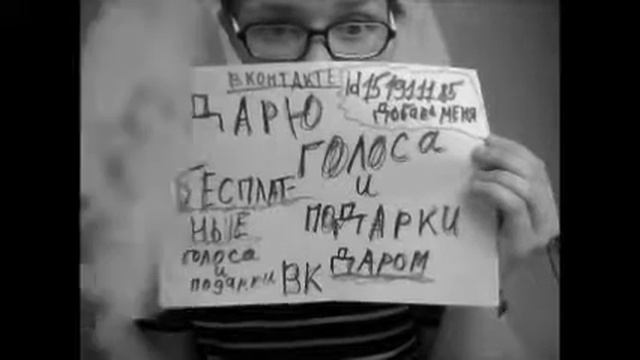 ВКОНТАКТЕ
Id151911185
ДОБАВЬ МЕНЯ
ДАРЮ
ГОЛОСа
и
ПОДАРКИ
ДАРОМ
БЕСПЛАТ-
НЫЕ
голоса
и
подарки
ВК